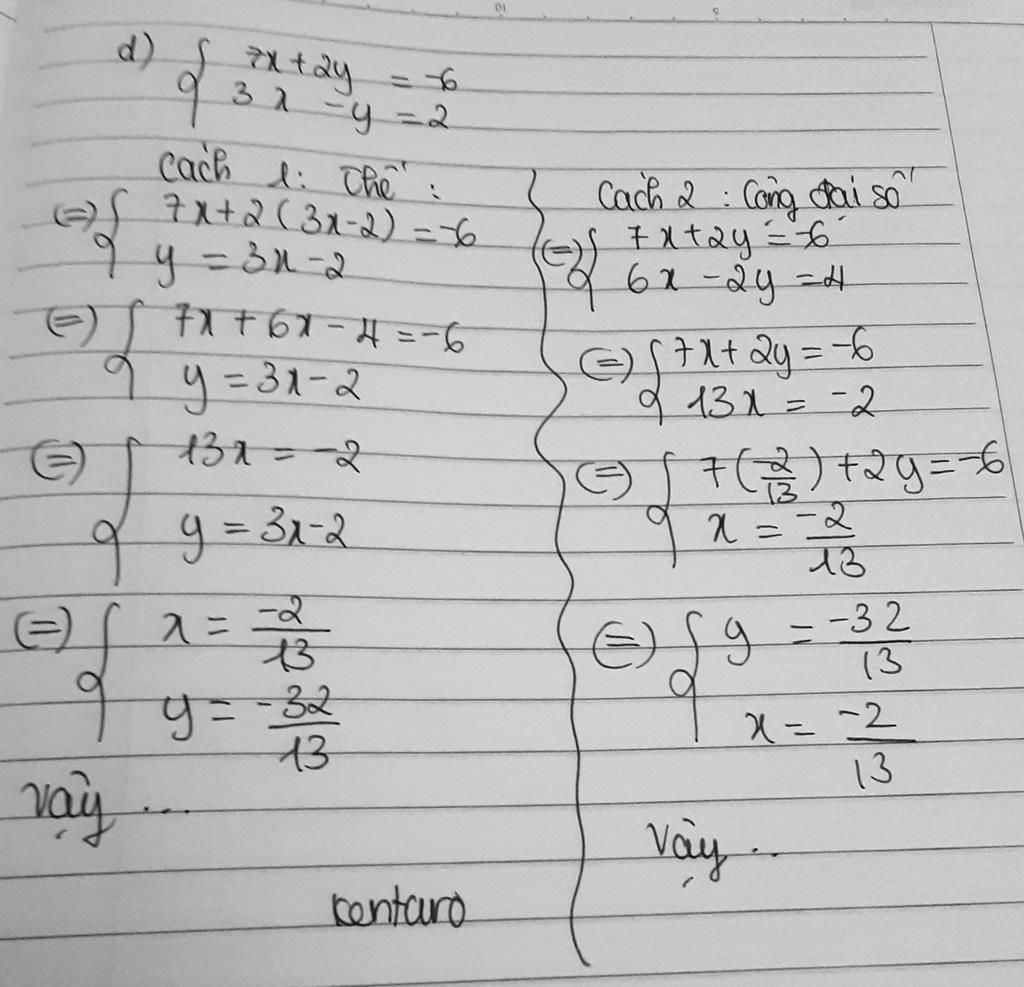 d) { 7x + 2y = -6
3x - y = 2
Cách 1: Thế:
<=> { 7x + 2(3x - 2) = -6
y = 3x - 2
<=> { 7x + 6x - 4 = -6
y = 3x - 2
<=> { 13x = -2
y = 3x - 2
<=> { x = -2/13
y = -32/13
Vậy ...
kentaro
Cách 2: Cộng đại số
<=> { 7x + 2y = -6
6x - 2y = 4
<=> { 7x + 2y = -6
13x = -2
<=> { 7(-2/13) + 2y = -6
x = -2/13
<=> { y = -32/13
x = -2/13
Vậy ..